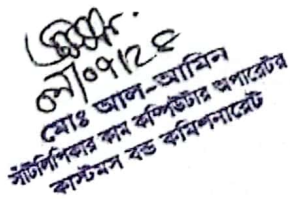 ০৭/০৭/২৫
মোঃ আল-আমিন
সাঁটলিপিকার কাম কম্পিউটার অপারেটর
কাস্টমস বন্ড কমিশনারেট